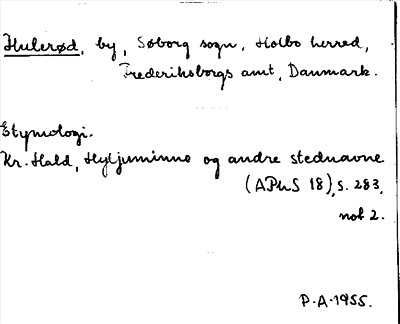 Hulerød, by, Søborg sogn, Holbo herred,
Frederiksborgs amt, Danmark.
Etymologi.
Kr. Hald, Hyljuminne og andre stednavne
(APhS 18), s. 283,
not 2.
P.A. 1955.